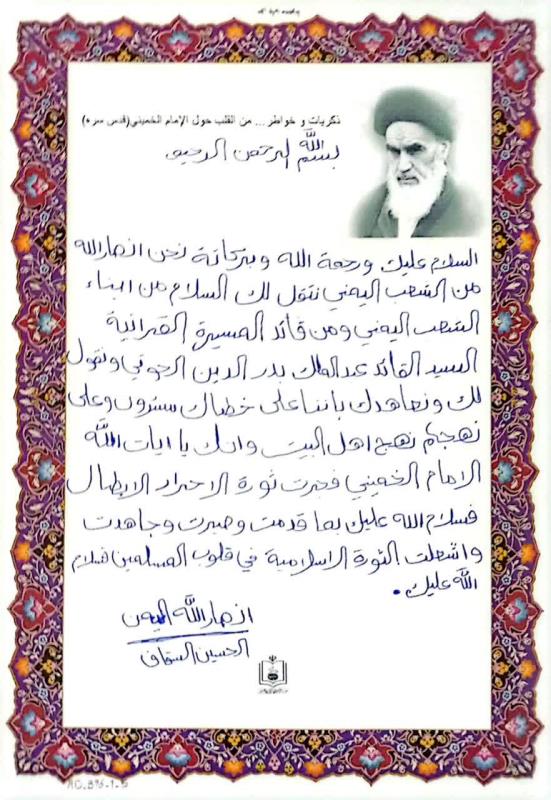 ذكريات و خواطر ... من القلب حول الإمام الخميني(قدس سره)
بسم الله الرحمن الرحيم
السلام عليك ورحمة الله وبركاتة نحن انصارالله
من الشعب اليمني ننقل لك السلام من ابناء
الشعب اليمني ومن قائد المسيرة القرانية
السيد القائد عبدالملك بدر الدين الحوثي ونقول
لك ونعاهدك بانناعلى خطاك مسترون وعلى
نهجكم نهج اهل البيت وانك يا ايات الله
الامام الخميني فجرت ثورة الاحرار الابطال
فسلام الله عليك بما قدمت وصبرت وجاهدت
واشعلت الثورة الاسلامية في قلوب المسلمين فسلام
الله عليك.
انصارالله اليمن
الحسين السقاف